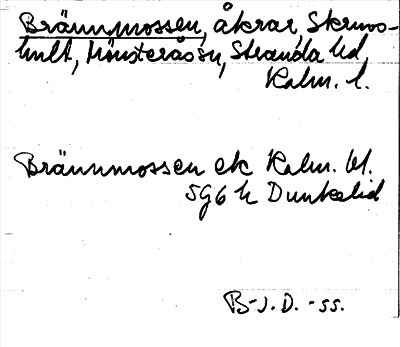 Brännmossen, åkrar, Skruvs-
hult, Mönsterås sn, Stranda hd,
Kalm. l.
Brännmossen ek Kalm. bl.
5G6 h Dunkelid
B-J.D. -55.